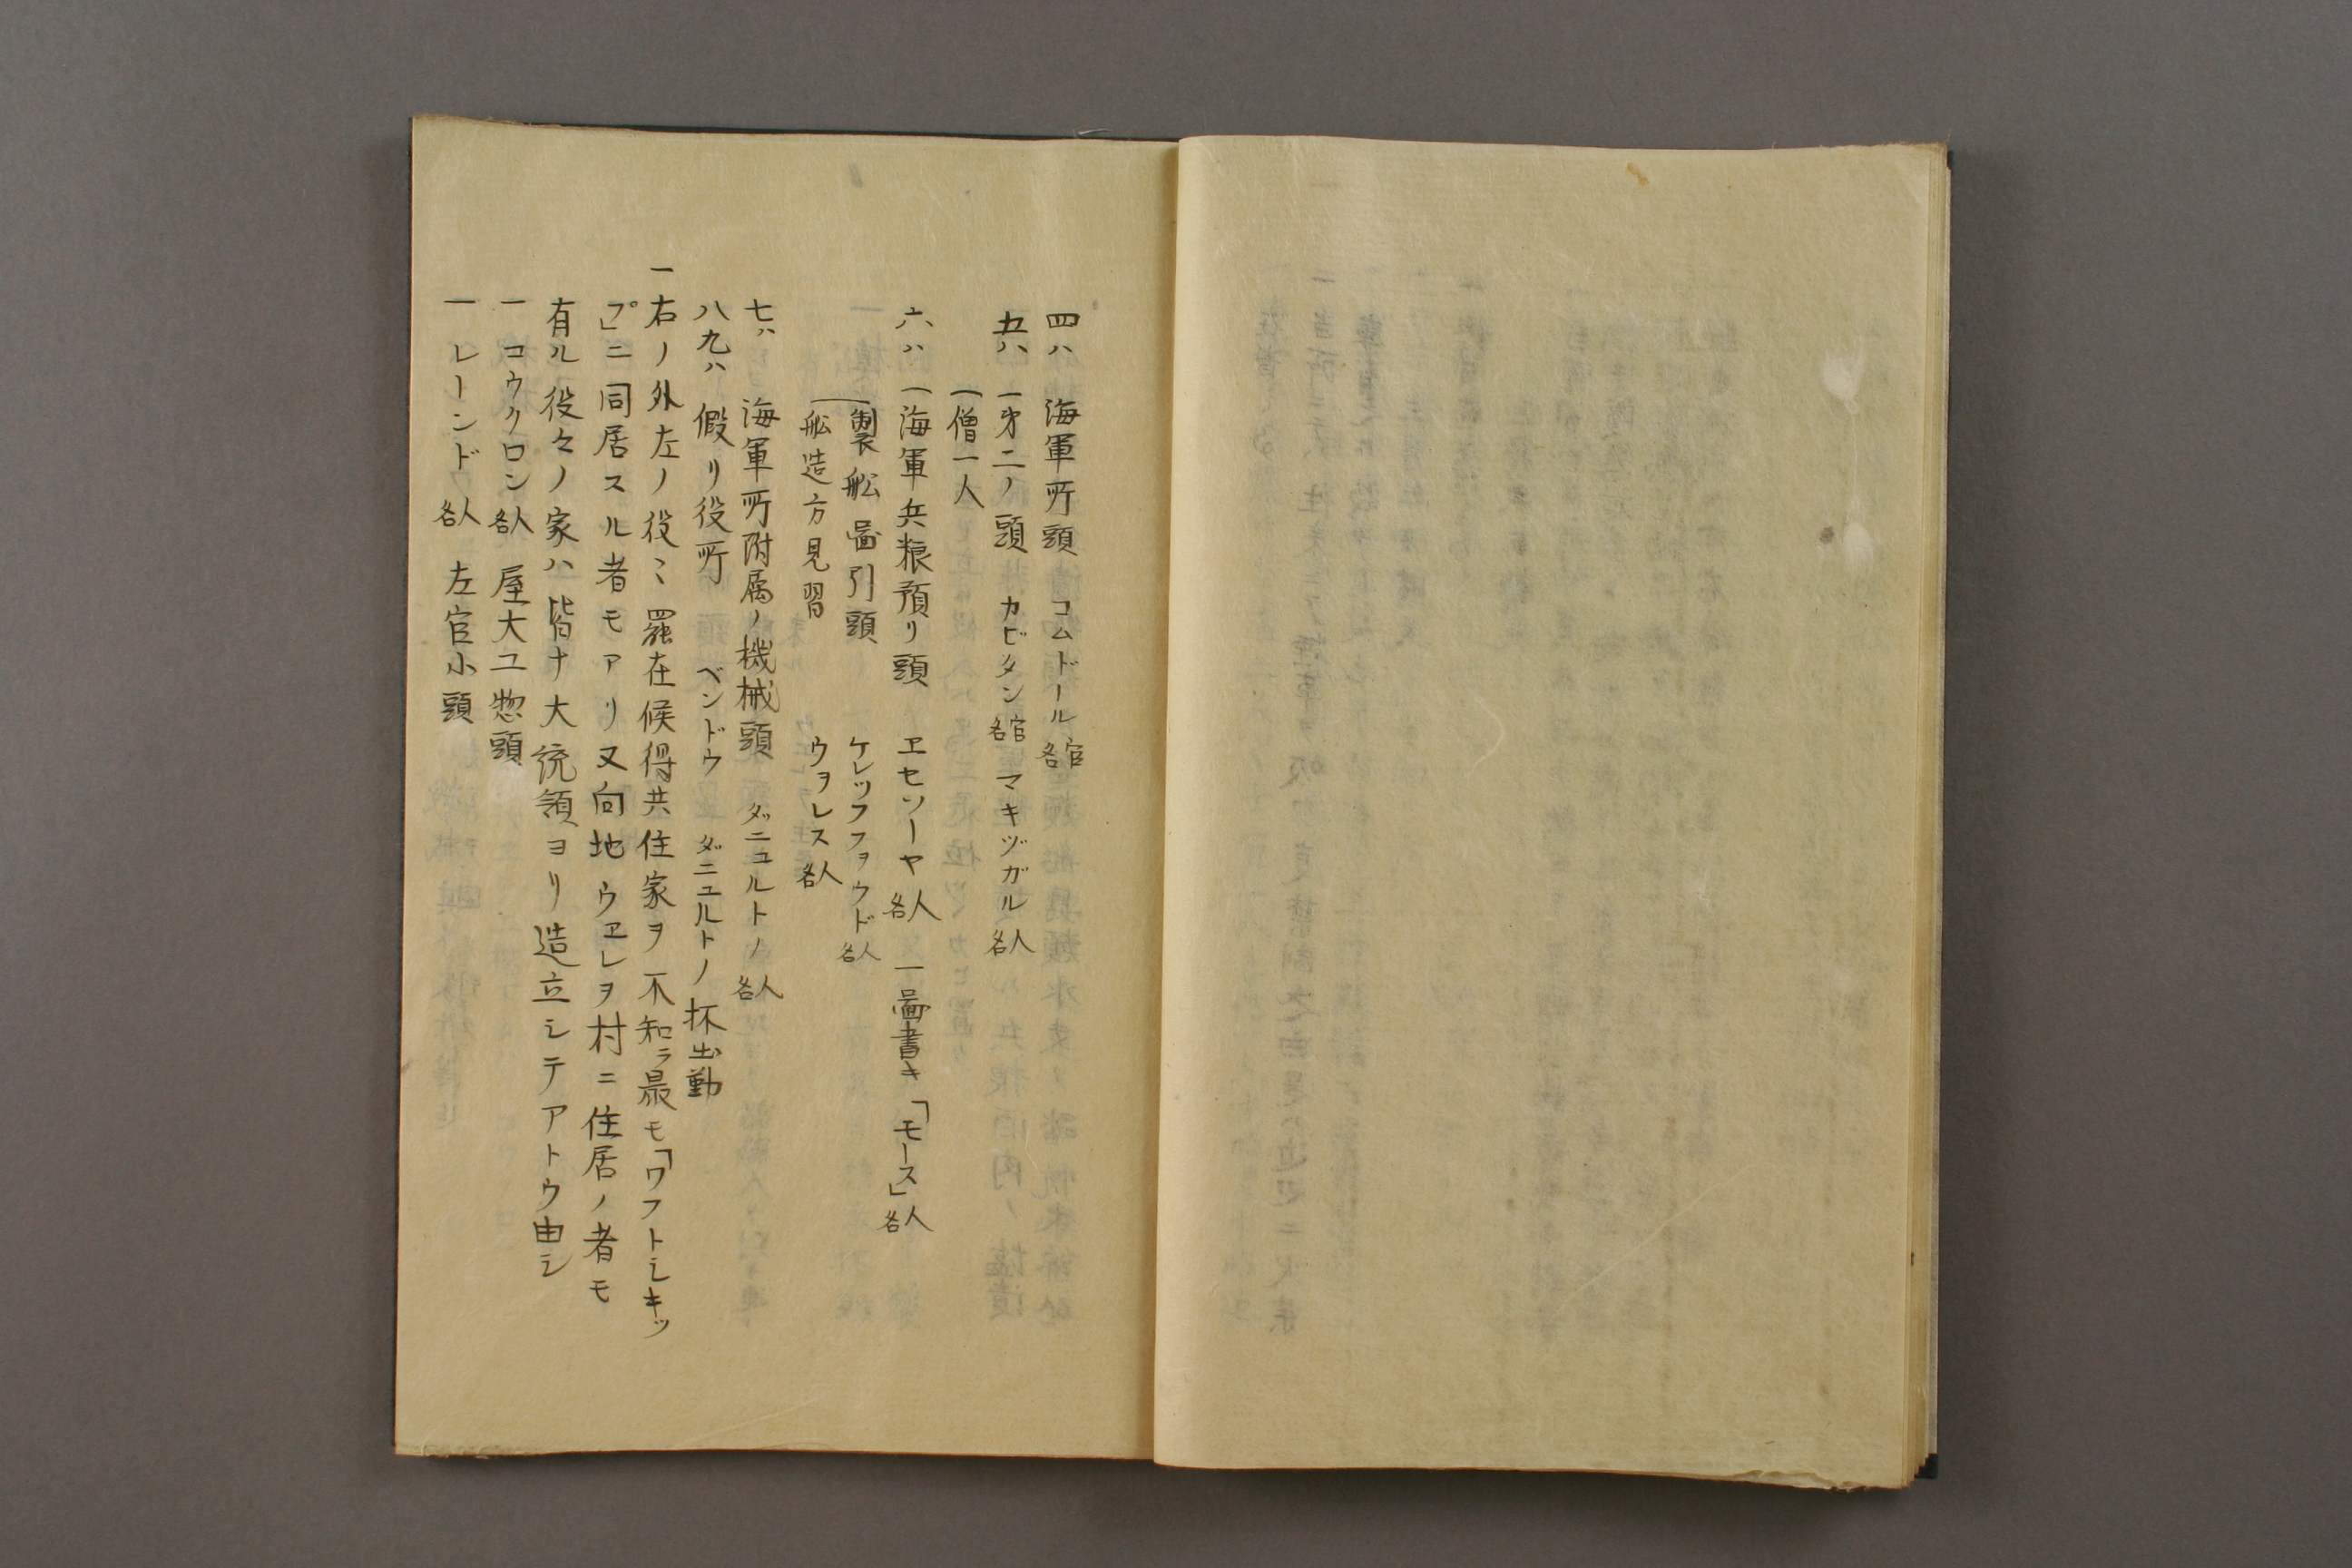 四ハ 海軍所頭 コムドール 官名
五ハ 一㐧二ノ頭 カピタン 官名 マキヅガル 人名
一僧一人
六ハ 一海軍兵粮預リ頭 ヱセソーヤ 人名 一啚書キ「モース」人名
一製舩啚引頭 ケレッフフヲウド 人名
舩造方見習 ウヲレス 人名
七ハ 海軍所附属ノ機械頭 ダニユルトノ 人名
八九ハ 假リ役所 ベンドウ ダニユルトノ 抔出勤
一右ノ外左ノ役〻罷在候得共住家ヲ不知ラ最モ「ワフトシキッ
プ」ニ同居スル者モアリ又向地ウヱレヲ村ニ住居ノ者モ
有ル役々ノ家ハ皆ナ大統領ヨリ造立シテアトウ由シ
一 コウクロン 人名 屋大工惣頭
一 レーンド 人名 左官小頭